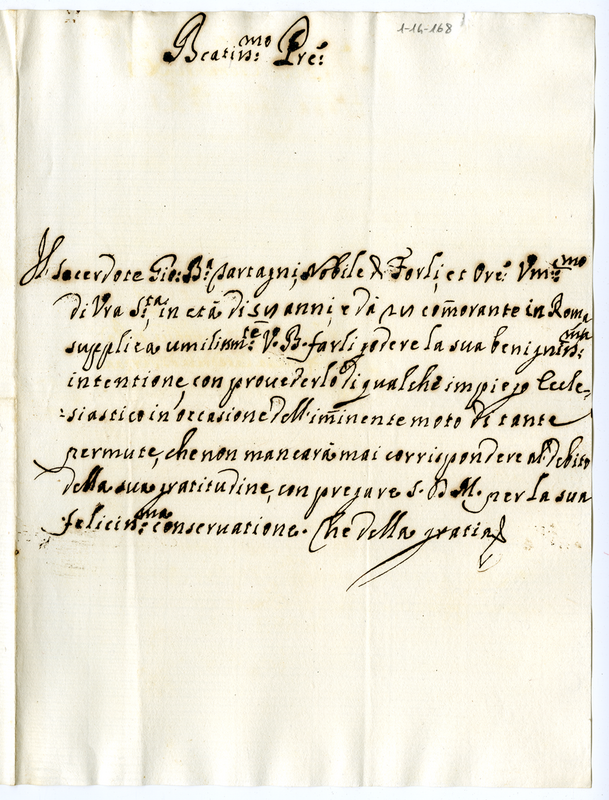 1-16-168
Beatiss:mo Pre:
Il Sacerdote Gio: Ba Nobile di Forlì, et Ore Um:mo
di Vra S:tà, in età di anni, e da comorante in Roma
supplica umilissm:te V. B. farli godere la sua benigniss:ma
intentione, con provederlo di qualche impiego Eccle-
-siastico in occasione dell'iminente moto di tante
permute, che non mancarà mai corrispondere al debito
della sua gratitudine, con pregare S. D. M. per la sua
feliciss:ma conservatione. Che della gratia